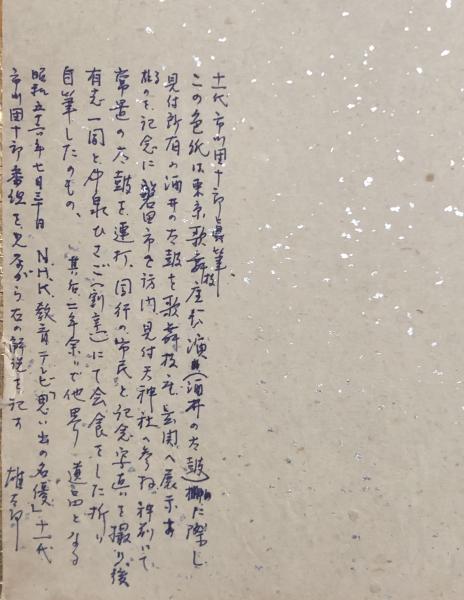 十一代市川団十郎真筆、
この色紙は東京歌舞伎座公演(酒井の太鼓)に際し
見付所有の酒井の太鼓を歌舞伎座玄関へ展示す
るのを記念に磐田市を訪問、見付天神社へ参拝、神前にて
常置の太鼓を連打、同行の市民と記念写真を撮り、後
有志一同と中泉ひさご(割烹)にて会食をした折り
自筆したもの、 其后二年余りで他界 遺品となる
昭和五十六年七月三十日 N.H.K.教育テレビ「思い出の名優」十一代
市川団十郎番組を見ながら右の解説を記す 雄